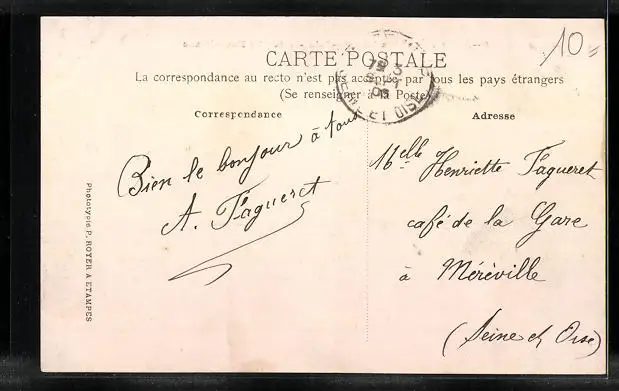 10=
CARTE POSTALE
La correspondance au recto n'est pas acceptée par tous les pays étrangers
(Se renseigner à la Poste)
Correspondance
Adresse
Bien le bonjour à tous
A. Fagueret
Melle Henriette Fagueret
café de la Gare
à Méréville
(Seine et Oise)
ET OISE
Phototypie P. ROYER A ETAMPES